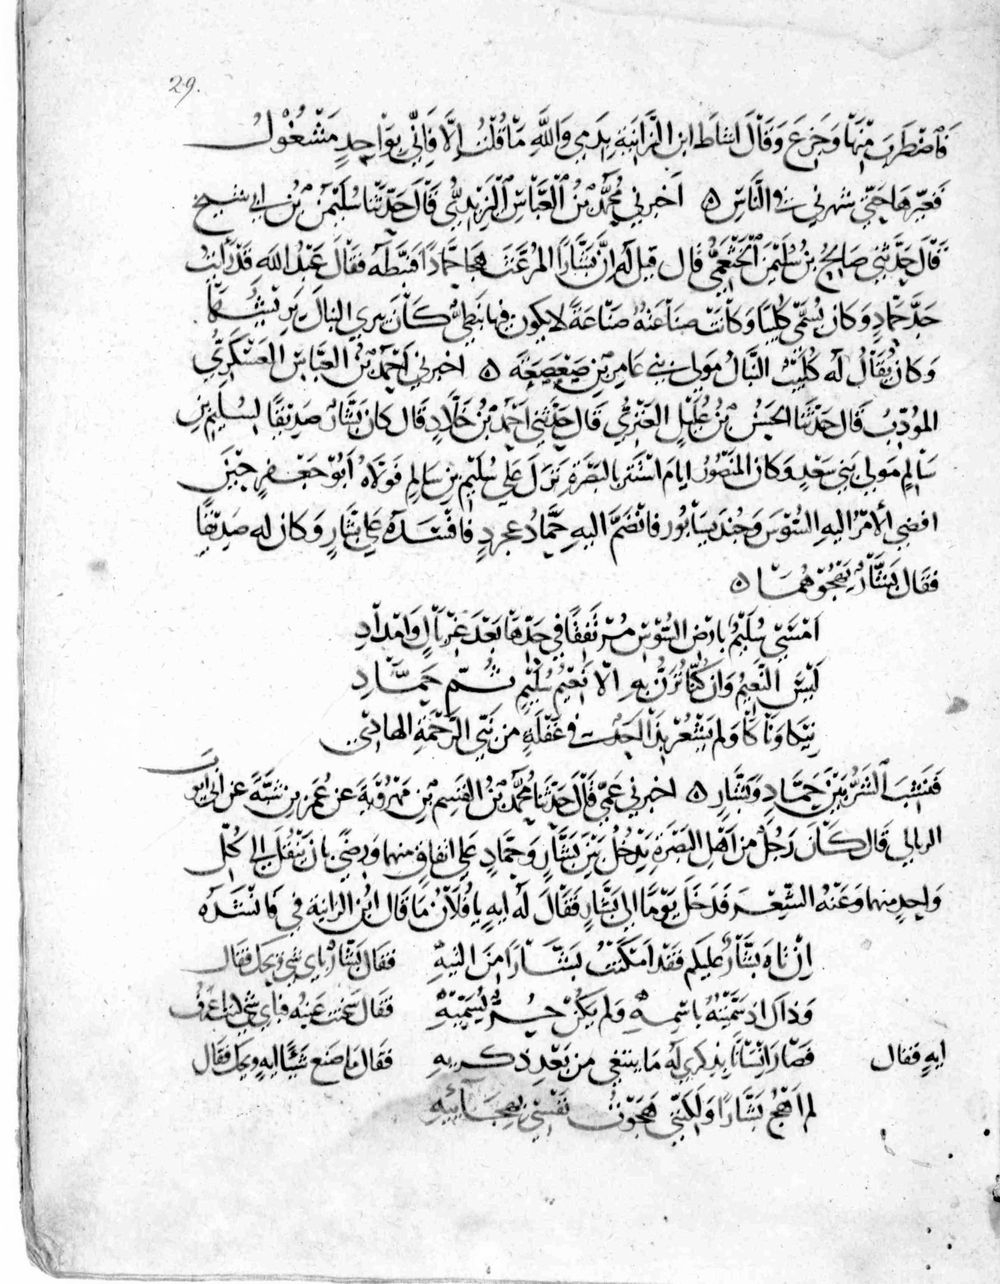 29.
فاضطرب منها وجزع وقال اشاط ابن الزانية بدمي والله ما قلت الا فاني بواحد مشغول
فغيرها حتى شهرني في الناس ه اخبرني محمد بن العباس اليزيدي قال حدثنا سليمن بن ابي شيخ
قال حدثني صالح بن سليمن الخثعمي قال قيل له ان بشارا المرعث هجا حمادا فنبطه فقال عبد الله قد رايت
جد حماد وكان يسمى كليبا وكانت صناعته صناعة لا يكون فيها نبطي كان يبري النبال ويريشها
وكان يقال له كليب النبال مولى بني عامر بن صعصعة ه اخبرني احمد بن العباس العسكري
المؤدب قال حدثنا الحسن بن عليل العنزي قال حدثني احمد بن خلاد قال كان بشار صديقا لسليم بن
سالم مولى بني سعد وكان المنصور ايام استتر بالبصرة نزل على سليم بن سالم فولاه ابو جعفر حين
افضى الامر اليه السوس وجندیسابور فانضم اليه حماد عجرد فافسده على بشار وكان له صديقا
فقال بشار يهجوهما ه
امسى سليم بارض السوس مرتفقا في خزها بعد غربال وامداد
ليس النعيم وان كنا نزن به الا نعيم سليم ثم حماد
نيكا وناكا ولم يشعر بذا احد في غفلة من نبي الرحمة الهادي
فنشب الشر بين حماد وبشار ه اخبرني عمي قال حدثنا محمد بن القسم بن مهرويه عن عمر بن شبة عن ابي ايوب
الزبالي قال كان رجل من اهل البصرة يدخل بين بشار وحماد على اتفاق منهما ورضى بان ينقل الى كل
واحد منهما وعنه الشعر فدخل يوما الى بشار فقال له ايه يا فلان ما قال ابن الزانية في فانشده
ان تاه بشار عليكم فقد امكنت بشارا من التيه فقال بشار باي شي ويحك فقال
وذاك اذ سميته باسمه ولم يكن حر يسميه فقال سخنت عينه فباي شي كنت اعرف
ايه فقال فصار انسانا بذكري له ما يبتغي من بعد ذكريه فقال ما صنع شيئا ايه ويحك فقال
لم اهج بشارا ولكنني هجوت نفسي بهجائيه